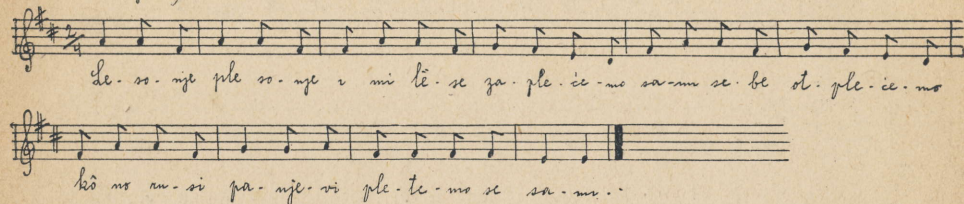 2/4
Le-so-nje ple so-nje i mi lê-se za-ple-će-mo sa-mi se-be ot-ple-će-mo
kô no ru-si pa-nje-vi ple-te-mo se sa-mi..